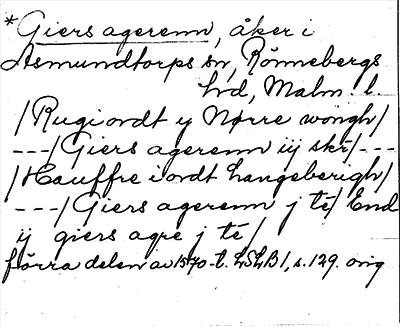 *Giers agerenn, åker i
Asmundtorps sn, Rönnebergs
hd, Malm. l.
/Rugi ordt y Nørre wongh/
---/Giers agerenn iij skr/---
/Hauffre i ordt Langeberigh/
---/Giers agerenn j té/ End
ij giers agre j té/
förra delen av 1570-t. LSLB1, s. 129. orig